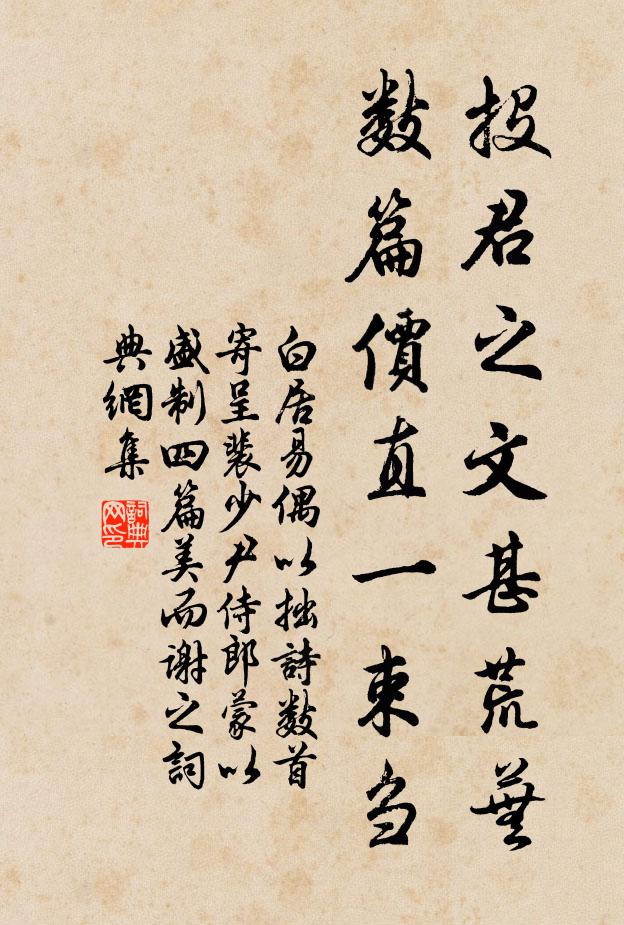 投君之文甚荒蕪
數篇價直一束刍
白居易偶以拙詩數首
寄呈裴少尹侍郎蒙以
盛制四篇美而謝之詞
典網集
詞典
网印